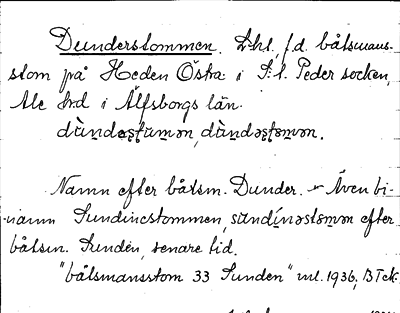 Dunderstommen. Lht, f.d. båtsmans-
stom på Heden Östra i S:t Peder socken,
Ale hrd i Älfsborgs län.
Namn efter båtsm. Dunder. – Även bi-
namn Sundinstommen, efter
båtsm. Sundén, senare tid.
"båtsmansstom 33 Sunden" ml. 1936, BTck.